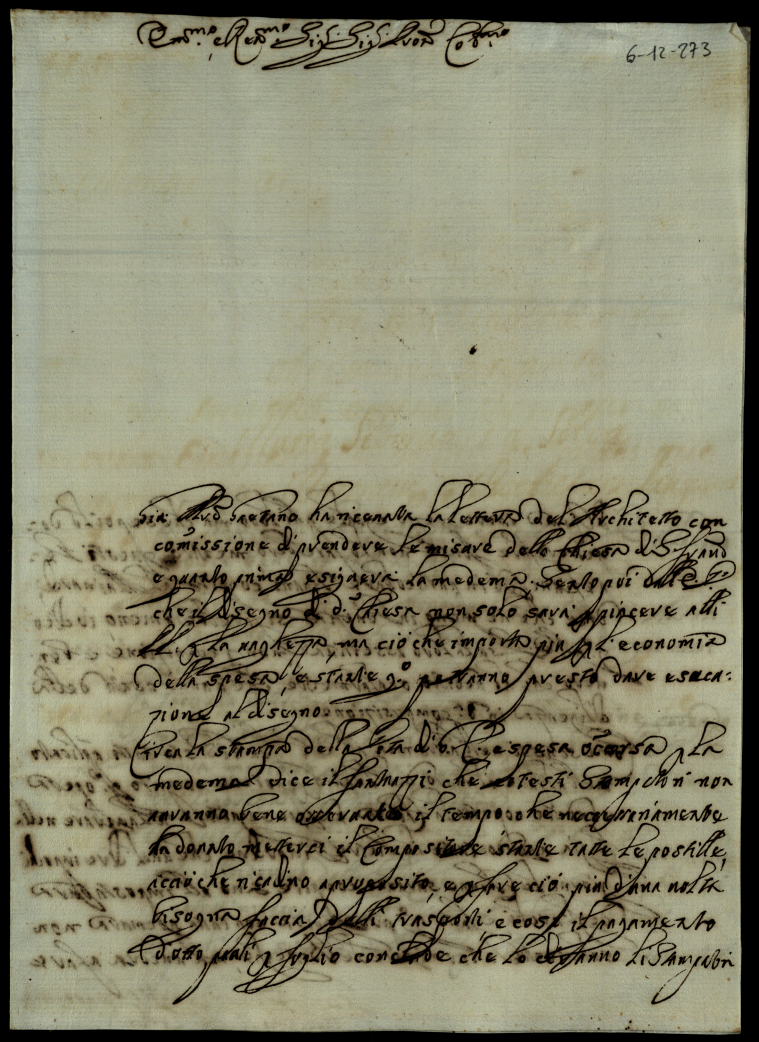 Em.mo e Rev.mo Sig.r Sig.r Pron Col.mo
6-12-273
Gaetano ha riceuuta la lettera del Architetto con
comissione di prendere le misure della Chiesa di
e quanto prima eseguera la medema. Sento poi
che il disegno di d.a Chiesa non solo sara piacere alli
p la uaghezza, ma ciò che importa più p l'economia
della spesa, e stante q.o potranno presto dare esecu-
zione al disegno
Circa la stampa della Vita di e spesa occorsa p la
medema dice il che cotesti Stampatori non
auranno bene osseruato il tempo, che necessariamente
ha douuto metterci il Compositore stante tutte le postille,
acciò che ricadino a proposito, e p fare ciò più d'una uolta
bisogna faccia delli trasporti e così il pagamento
d'otto paoli p foglio conclude che lo li Stampatori